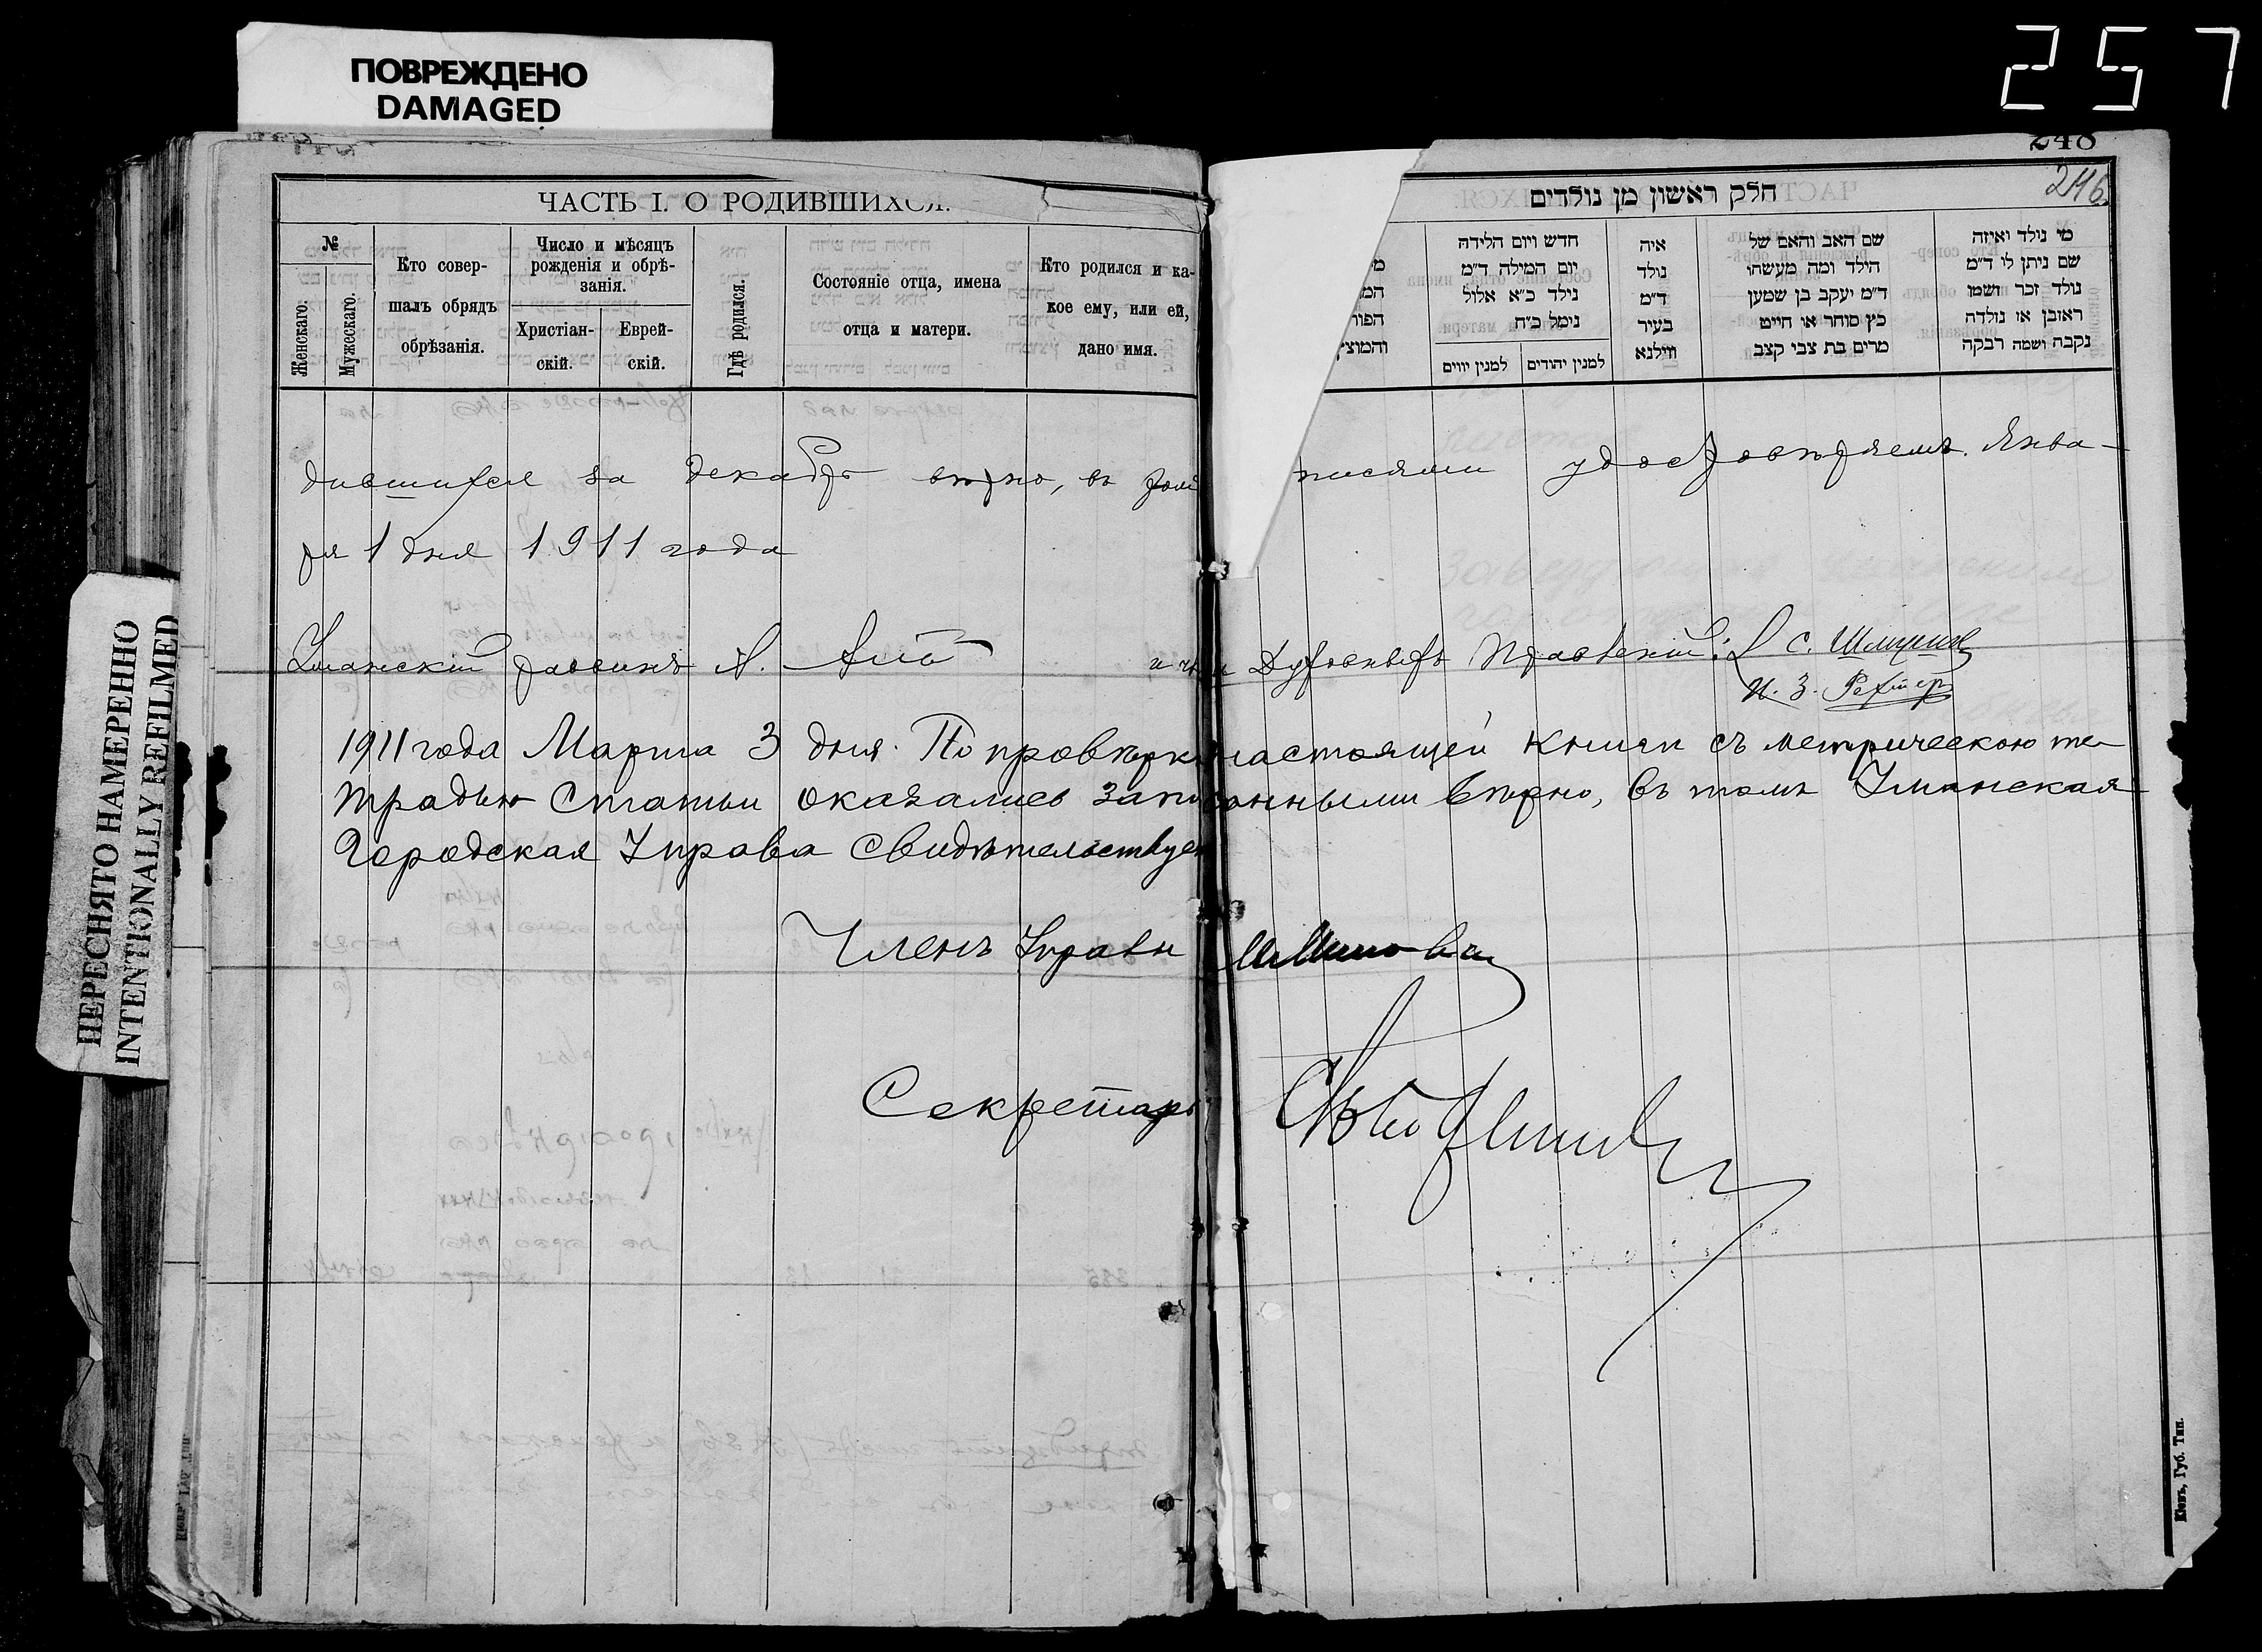 257
ПОВРЕЖДЕНО
DAMAGED
ПЕРЕСНЯТО НАМЕРЕННО
INTENTIONALLY REFILMED
ЧАСТЬ I. О РОДИВШИХСЯ.
№
Женскаго.
Мужескаго.
Кто совер-
шалъ обрядъ
обрѣзанія.
Число и мѣсяцъ
рожденія и обрѣ-
занія.
Христіан-
скій.
Еврей-
скій.
Гдѣ родился.
Состояніе отца, имена
отца и матери.
Кто родился и ка-
кое ему, или ей,
дано имя.
248
246
חלק ראשון מן נולדים
מי נולד ואיזה
שם ניתן לי ד"מ
נולד זכר ושמו
ראובן או נולדה
נקבה ושמה רבקה
שם האב והאם של
הילד ומה מעשהו
ד"מ יעקב בן שמעון
כץ סוחר או חייט
מרים בת צבי קצב
איה
נולד
ד"מ
בעיר
ווילנא
חדש ויום הלידה
יום המילה ד"מ
נילד כ"א אלול
נימל כ"ח
למנין יהודים
למנין יווים
дившихся за декабрь вѣрно, въ томъ писями удостовѣряемъ. Янва-
ря 1 дня 1911 года
Уманскій раввинъ и члены Духовнаго Правленія: С.
1911 года Марта 3 дня. По провѣркѣ настоящей книги съ метрическою те-
традью статьи оказались записанными вѣрно, въ томъ Уманская
Городская Управа свидѣтельствуетъ
Членъ Управы
Секретарь
Кіевъ, Губ. Тип.